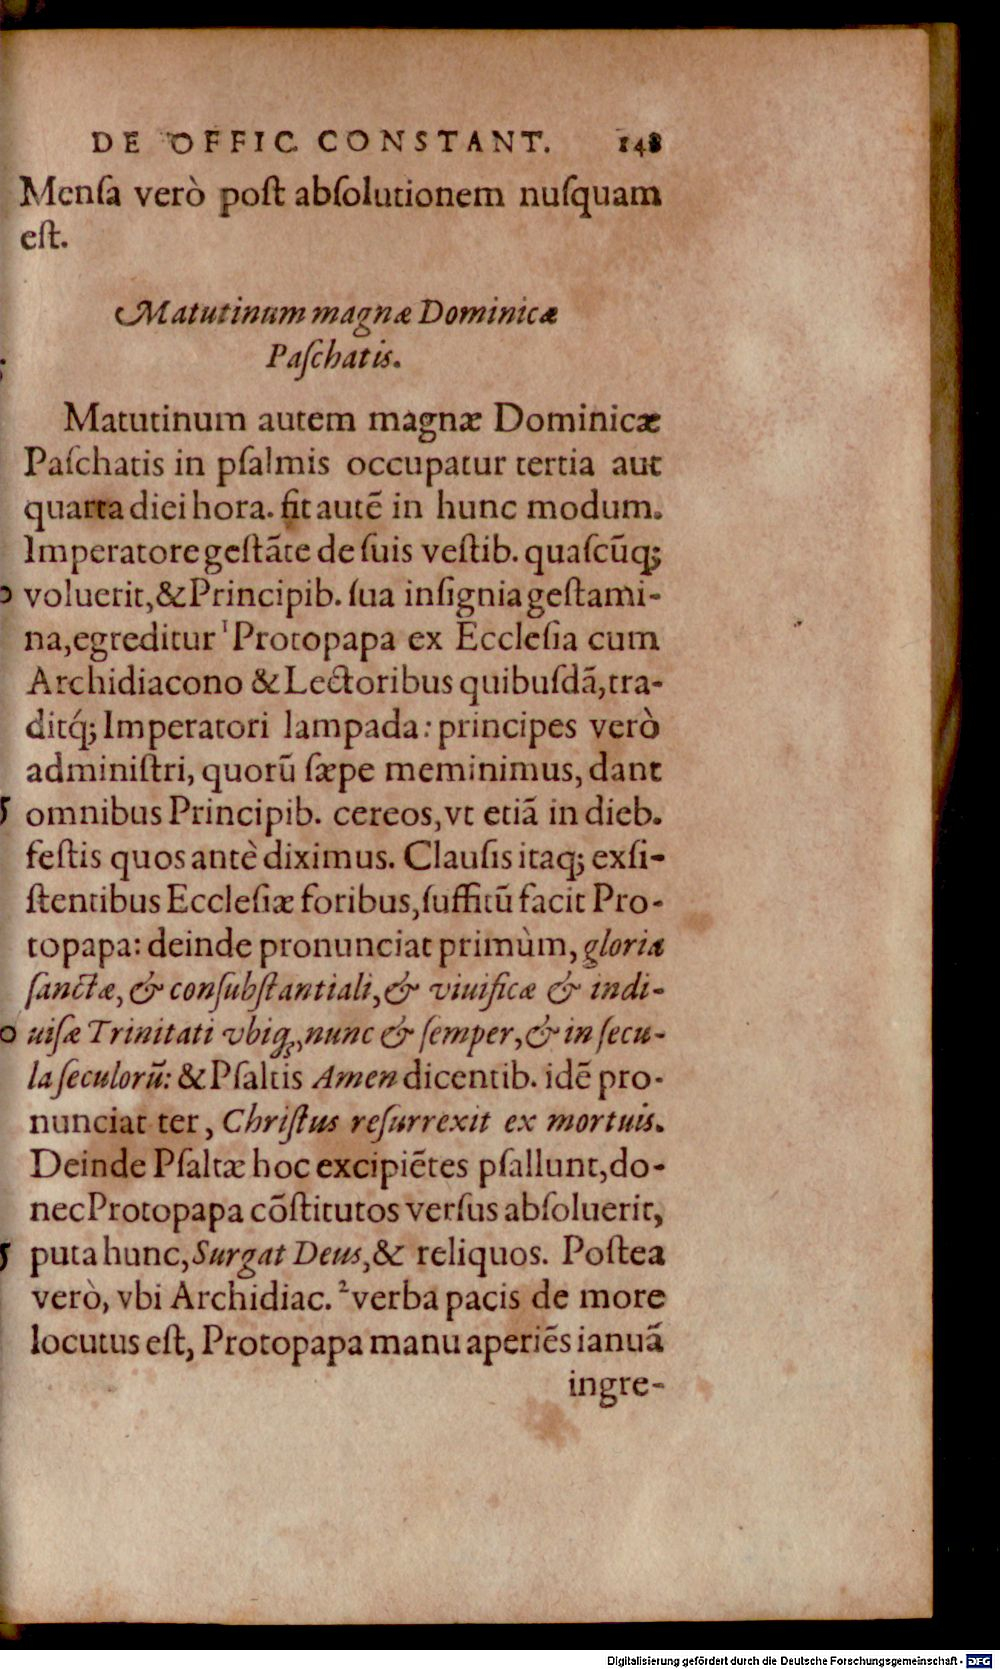 DE OFFIC. CONSTANT. 148
Mensa verò post absolutionem nusquam
est.
Matutinum magnæ Dominicæ
Paschatis.
Matutinum autem magnæ Dominicæ
Paschatis in psalmis occupatur tertia aut
quarta diei hora. fit autē in hunc modum.
Imperatore gestāte de suis vestib. quascūq;
voluerit, & Principib. sua insignia gestami-
na, egreditur ¹Protopapa ex Ecclesia cum
Archidiacono & Lectoribus quibusdā, tra-
ditq́; Imperatori lampada: principes verò
administri, quorū sæpe meminimus, dant
omnibus Principib. cereos, vt etiā in dieb.
festis quos antè diximus. Clausis itaq; exsi-
stentibus Ecclesiæ foribus, suffitū facit Pro-
topapa: deinde pronunciat primùm, gloria
sanctæ, & consubstantiali, & viuificæ & indi-
uisæ Trinitati vbiq;, nunc & semper, & in secu-
la seculorū: & Psaltis Amen dicentib. idē pro-
nunciat ter, Christus resurrexit ex mortuis.
Deinde Psaltæ hoc excipiētes psallunt, do-
nec Protopapa cōstitutos versus absoluerit,
puta hunc, Surgat Deus, & reliquos. Postea
verò, vbi Archidiac. ²verba pacis de more
locutus est, Protopapa manu aperiēs ianuā
ingre-
Digitalisierung gefördert durch die Deutsche Forschungsgemeinschaft - DFG